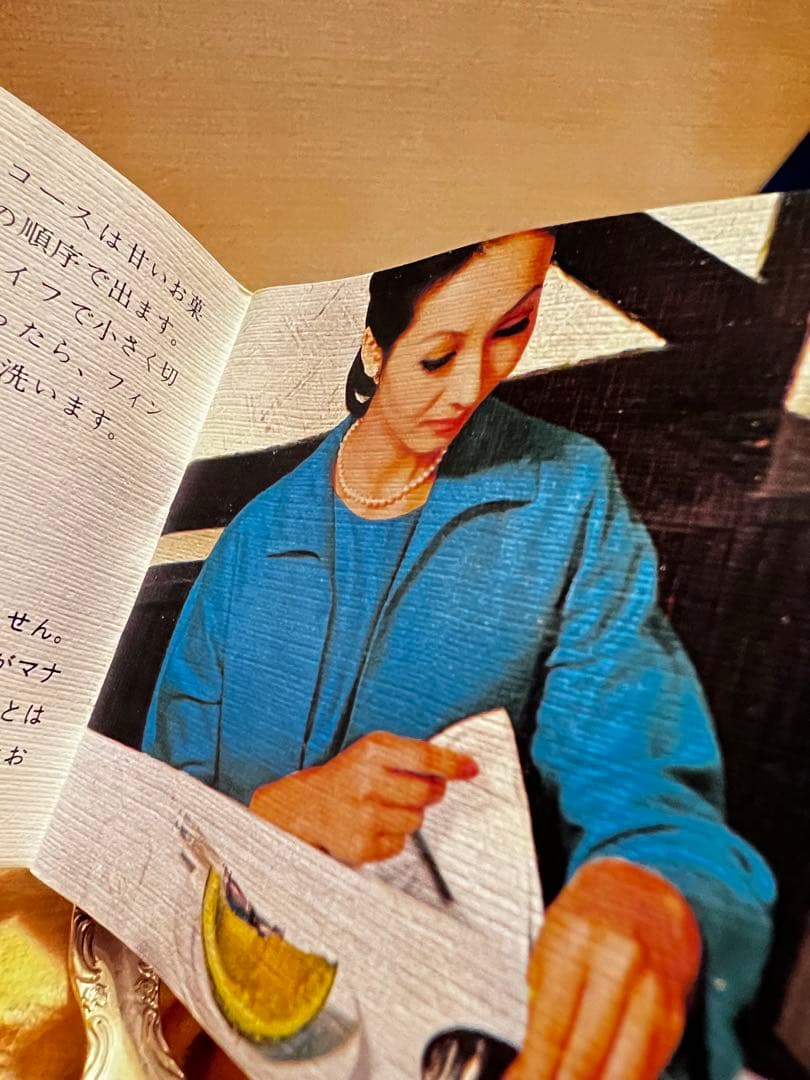 コースは甘いお菓
の順序で出ます。
イフで小さく切
ったら、フィン
洗います。
せん。
がマナ
とは
お